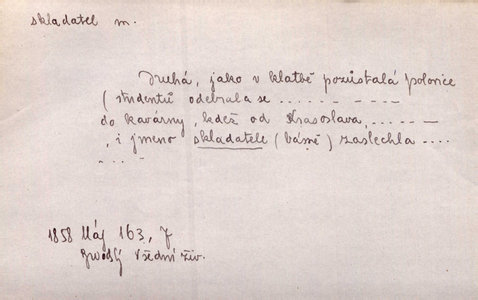 skladatel m.
Druhá, jako v klatbě pozůstalá polovice
(studentů odebrala se ....... - ----
do kavárny, kdež od Krasoslava, .... - --
, i jmeno skladatele (básně) zaslechla ....
... "
1858 Máj 163, 7
všední živ.